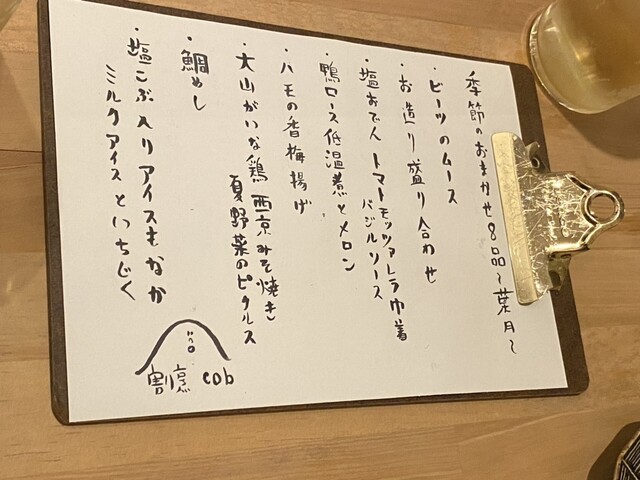 季節のおまかせ8品〜葉月〜
・ビーツのムース
・お造り盛り合わせ
・塩おでん トマトモッツァレラ巾着
バジルソース
・鴨ロース低温煮とメロン
・ハモの香梅揚げ
・大山がいな鶏 西京みそ焼き
夏野菜のピクルス
・鯛めし
・塩こぶ入りアイスもなか
ミルクアイスといちじく
割烹 cob